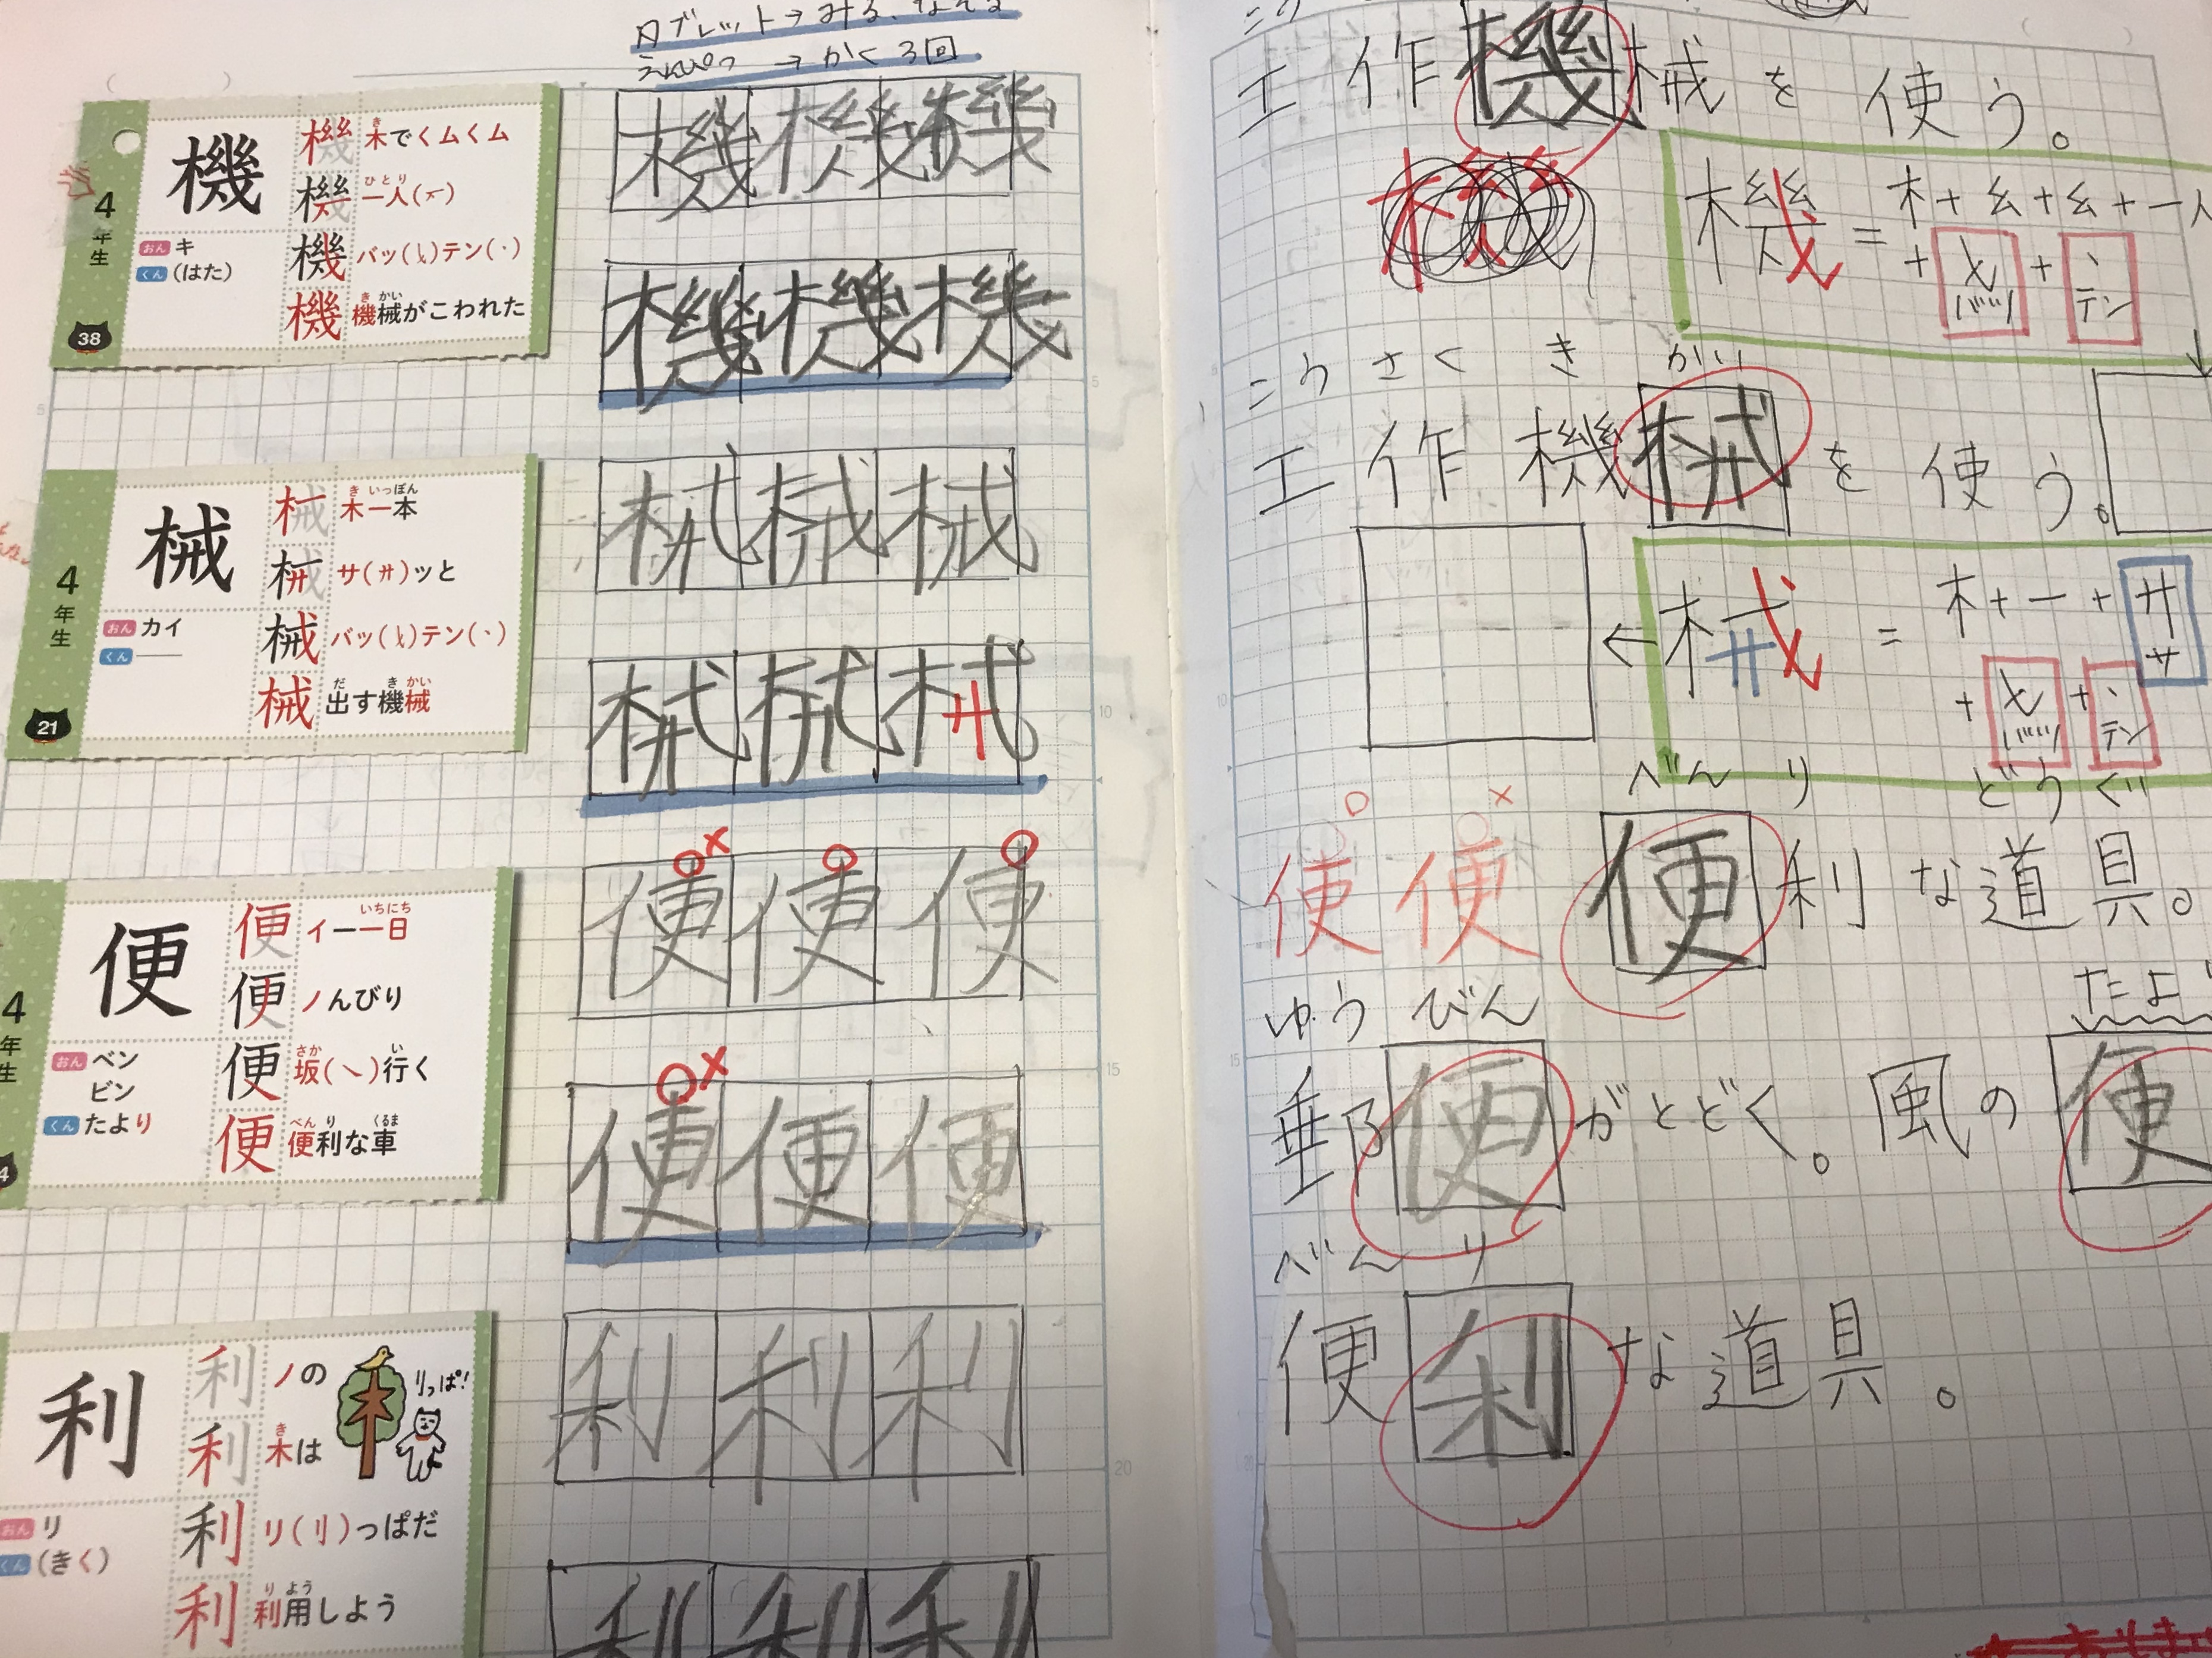 タブレット→みる、なぞる
えんぴつ→かく3回
4年生
機
おん キ
くん (はた)
38
機 木でくムくム
機 一人
機 バッ テン(丶)
機 機械がこわれた
機 機 機
機 機 機
4年生
械
おん カイ
くん ――
21
械 木一本
械 サ(廾)ッと
械 バッ テン(丶)
械 出す機械
械 械 械
械 械 械
4年生
便
おん ベン
ビン
くん たより
便 イ一一日
便 ノんびり
便 坂(㇏)行く
便 便利な車
便 便 便
便 便 便
利
おん リ
くん (きく)
利 ノの
利 木は
利 リ(刂)っぱだ
利 利用しよう
りっぱ!
利 利 利
利 利 利
工作機械を使う。
機=木+幺+幺+一人
+ バツ + 丶 テン
こうさくきかい
工作機械を使う。
械=木+一+廾 サ
+ バツ + 丶 テン
べんり どうぐ
便 便 便利な道具。
ゆうびん たよ
郵便がとどく。風の便
べんり
便利な道具。